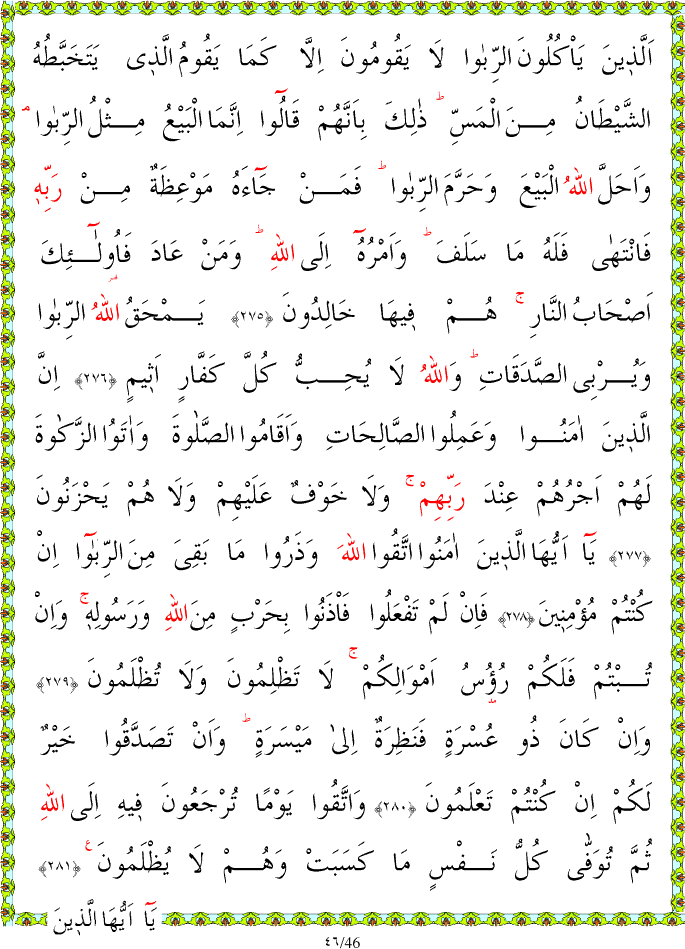 اَلَّذ۪ينَ يَأْكُلُونَ الرِّبٰوا لَا يَقُومُونَ اِلَّا كَمَا يَقُومُ الَّذ۪ي يَتَخَبَّطُهُ
الشَّيْطَانُ مِنَ الْمَسِّۜ ذٰلِكَ بِاَنَّهُمْ قَالُٓوا اِنَّمَا الْبَيْعُ مِثْلُ الرِّبٰواۢ
وَاَحَلَّ اللّٰهُ الْبَيْعَ وَحَرَّمَ الرِّبٰواۜ فَمَنْ جَٓاءَهُ مَوْعِظَةٌ مِنْ رَبِّه۪
فَانْتَهٰى فَلَهُ مَا سَلَفَۜ وَاَمْرُهُٓ اِلَى اللّٰهِۜ وَمَنْ عَادَ فَاُو۬لٰٓئِكَ
اَصْحَابُ النَّارِۚ هُمْ ف۪يهَا خَالِدُونَ ﴿٢٧٥﴾ يَمْحَقُ اللّٰهُ الرِّبٰوا
وَيُرْبِي الصَّدَقَاتِۜ وَاللّٰهُ لَا يُحِبُّ كُلَّ كَفَّارٍ اَث۪يمٍ ﴿٢٧٦﴾ اِنَّ
الَّذ۪ينَ اٰمَنُوا وَعَمِلُوا الصَّالِحَاتِ وَاَقَامُوا الصَّلٰوةَ وَاٰتَوُا الزَّكٰوةَ
لَهُمْ اَجْرُهُمْ عِنْدَ رَبِّهِمْۚ وَلَا خَوْفٌ عَلَيْهِمْ وَلَا هُمْ يَحْزَنُونَ
﴿٢٧٧﴾ يَٓا اَيُّهَا الَّذ۪ينَ اٰمَنُوا اتَّقُوا اللّٰهَ وَذَرُوا مَا بَقِيَ مِنَ الرِّبٰٓوا اِنْ
كُنْتُمْ مُؤْمِن۪ينَ ﴿٢٧٨﴾ فَاِنْ لَمْ تَفْعَلُوا فَأْذَنُوا بِحَرْبٍ مِنَ اللّٰهِ وَرَسُولِه۪ۚ وَاِنْ
تُبْتُمْ فَلَكُمْ رُؤُ۫سُ اَمْوَالِكُمْۚ لَا تَظْلِمُونَ وَلَا تُظْلَمُونَ ﴿٢٧٩﴾
وَاِنْ كَانَ ذُو عُسْرَةٍ فَنَظِرَةٌ اِلٰى مَيْسَرَةٍۜ وَاَنْ تَصَدَّقُوا خَيْرٌ
لَكُمْ اِنْ كُنْتُمْ تَعْلَمُونَ ﴿٢٨٠﴾ وَاتَّقُوا يَوْمًا تُرْجَعُونَ ف۪يهِ اِلَى اللّٰهِ
ثُمَّ تُوَفّٰى كُلُّ نَفْسٍ مَا كَسَبَتْ وَهُمْ لَا يُظْلَمُونَ۟ ﴿٢٨١﴾
يَٓا اَيُّهَا الَّذ۪ينَ
٤٦/46